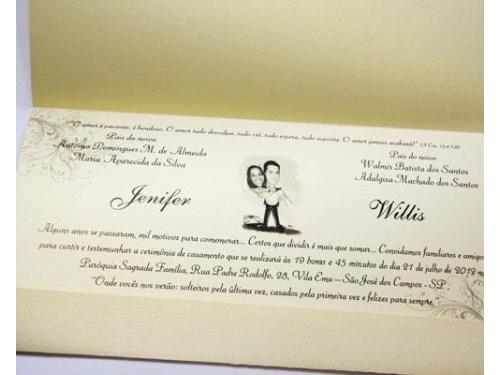 "O amor é paciente, é bondoso. O amor tudo desculpa, tudo crê, tudo espera, tudo suporta. O amor jamais acabará!" (I Co. 13:4-8)
Pais da noiva
Antonio Domingues M. de Almeida
Maria Aparecida da Silva
Pais do noivo
Walmir Batista dos Santos
Adalgisa Machado dos Santos
Jenifer
Willis
Alguns anos se passaram, mil motivos para comemorar... Certos que dividir é mais que somar... Convidamos familiares e amigos
para curtir e testemunhar a cerimônia de casamento que se realizará às 19 horas e 45 minutos do dia 21 de julho de 2012 na
Paróquia Sagrada Família, Rua Padre Rodolfo, 28, Vila Ema - São José dos Campos - SP.
"Onde vocês nos verão: solteiros pela última vez, casados pela primeira vez e felizes para sempre."